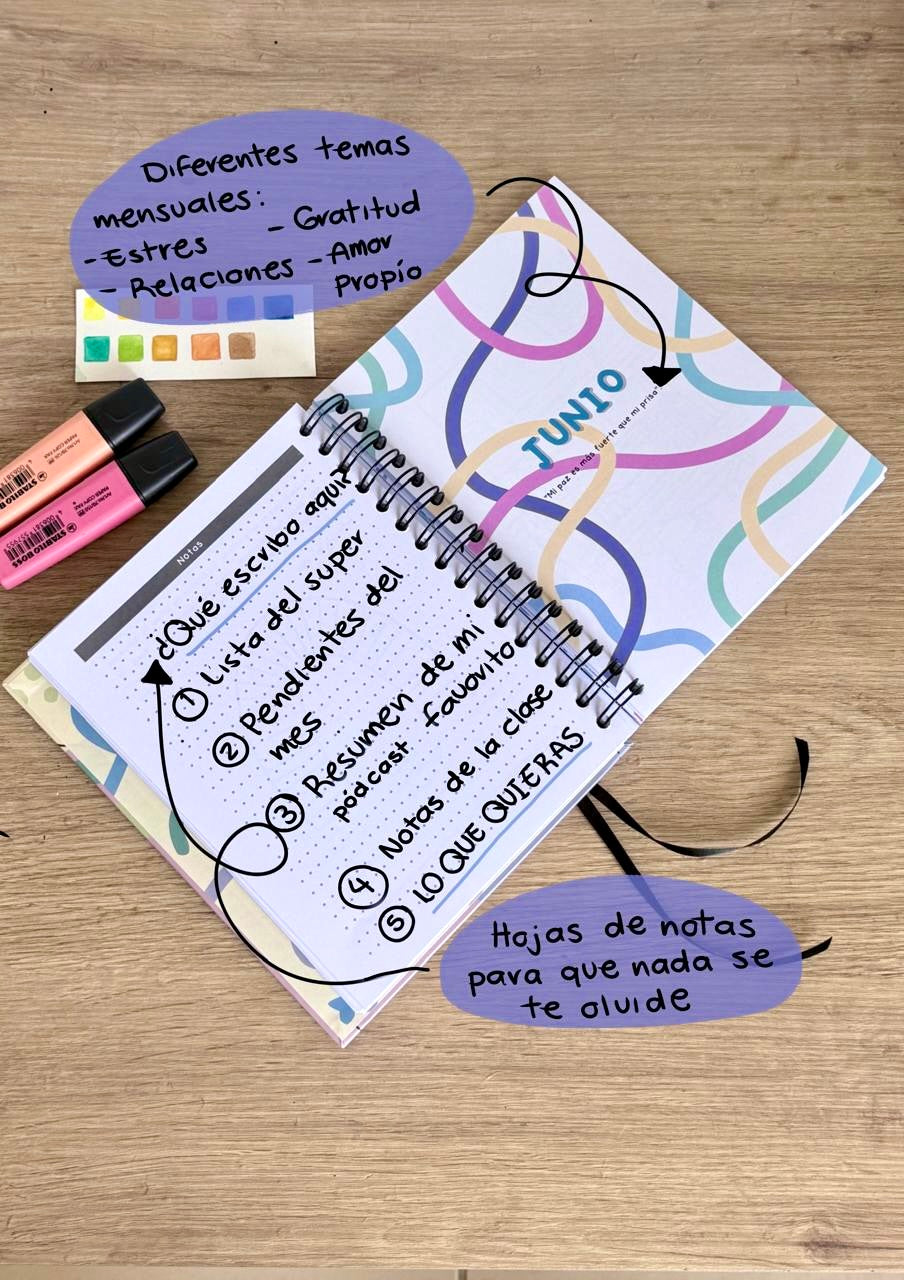 Diferentes temas
mensuales:
-Estres
- Gratitud
- Relaciones
-Amor
Propio
JUNIO
"Mi paz es más fuerte que mi prisa"
Notas
¿Qué escribo aquí?
① Lista del super
② Pendientes del
mes
③ Resumen de mi
pódcast favorito
④ Notas de la clase
⑤ LO QUE QUIERAS
Hojas de notas
para que nada se
te olvide
STABILO B
STABILO BOSS